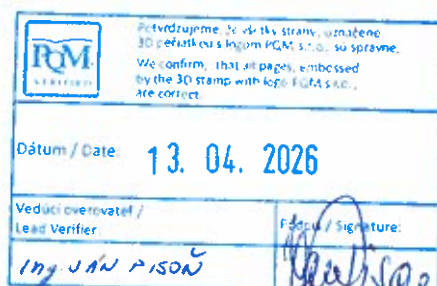 PQM
VERIFIED
Potvrdzujeme, že všetky strany, označené
3D pečiatkou s logom PQM, s.r.o., sú správne.
We confirm, that all pages, embossed
by the 3D stamp with logo PQM s.r.o.,
are correct.
Dátum / Date:
13. 04. 2026
Vedúci overovateľ /
Lead Verifier:
/ Signature:
Ing. JÁN PISOŇ